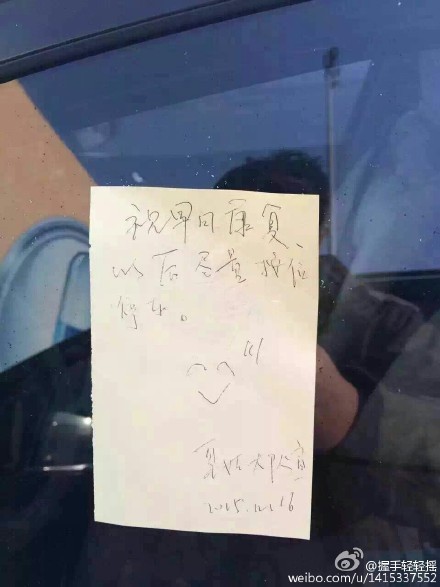 祝早日康复、
以后尽量按位
停车。
2015.12.16
@握手轻轻摇
weibo.com/u/1415337552